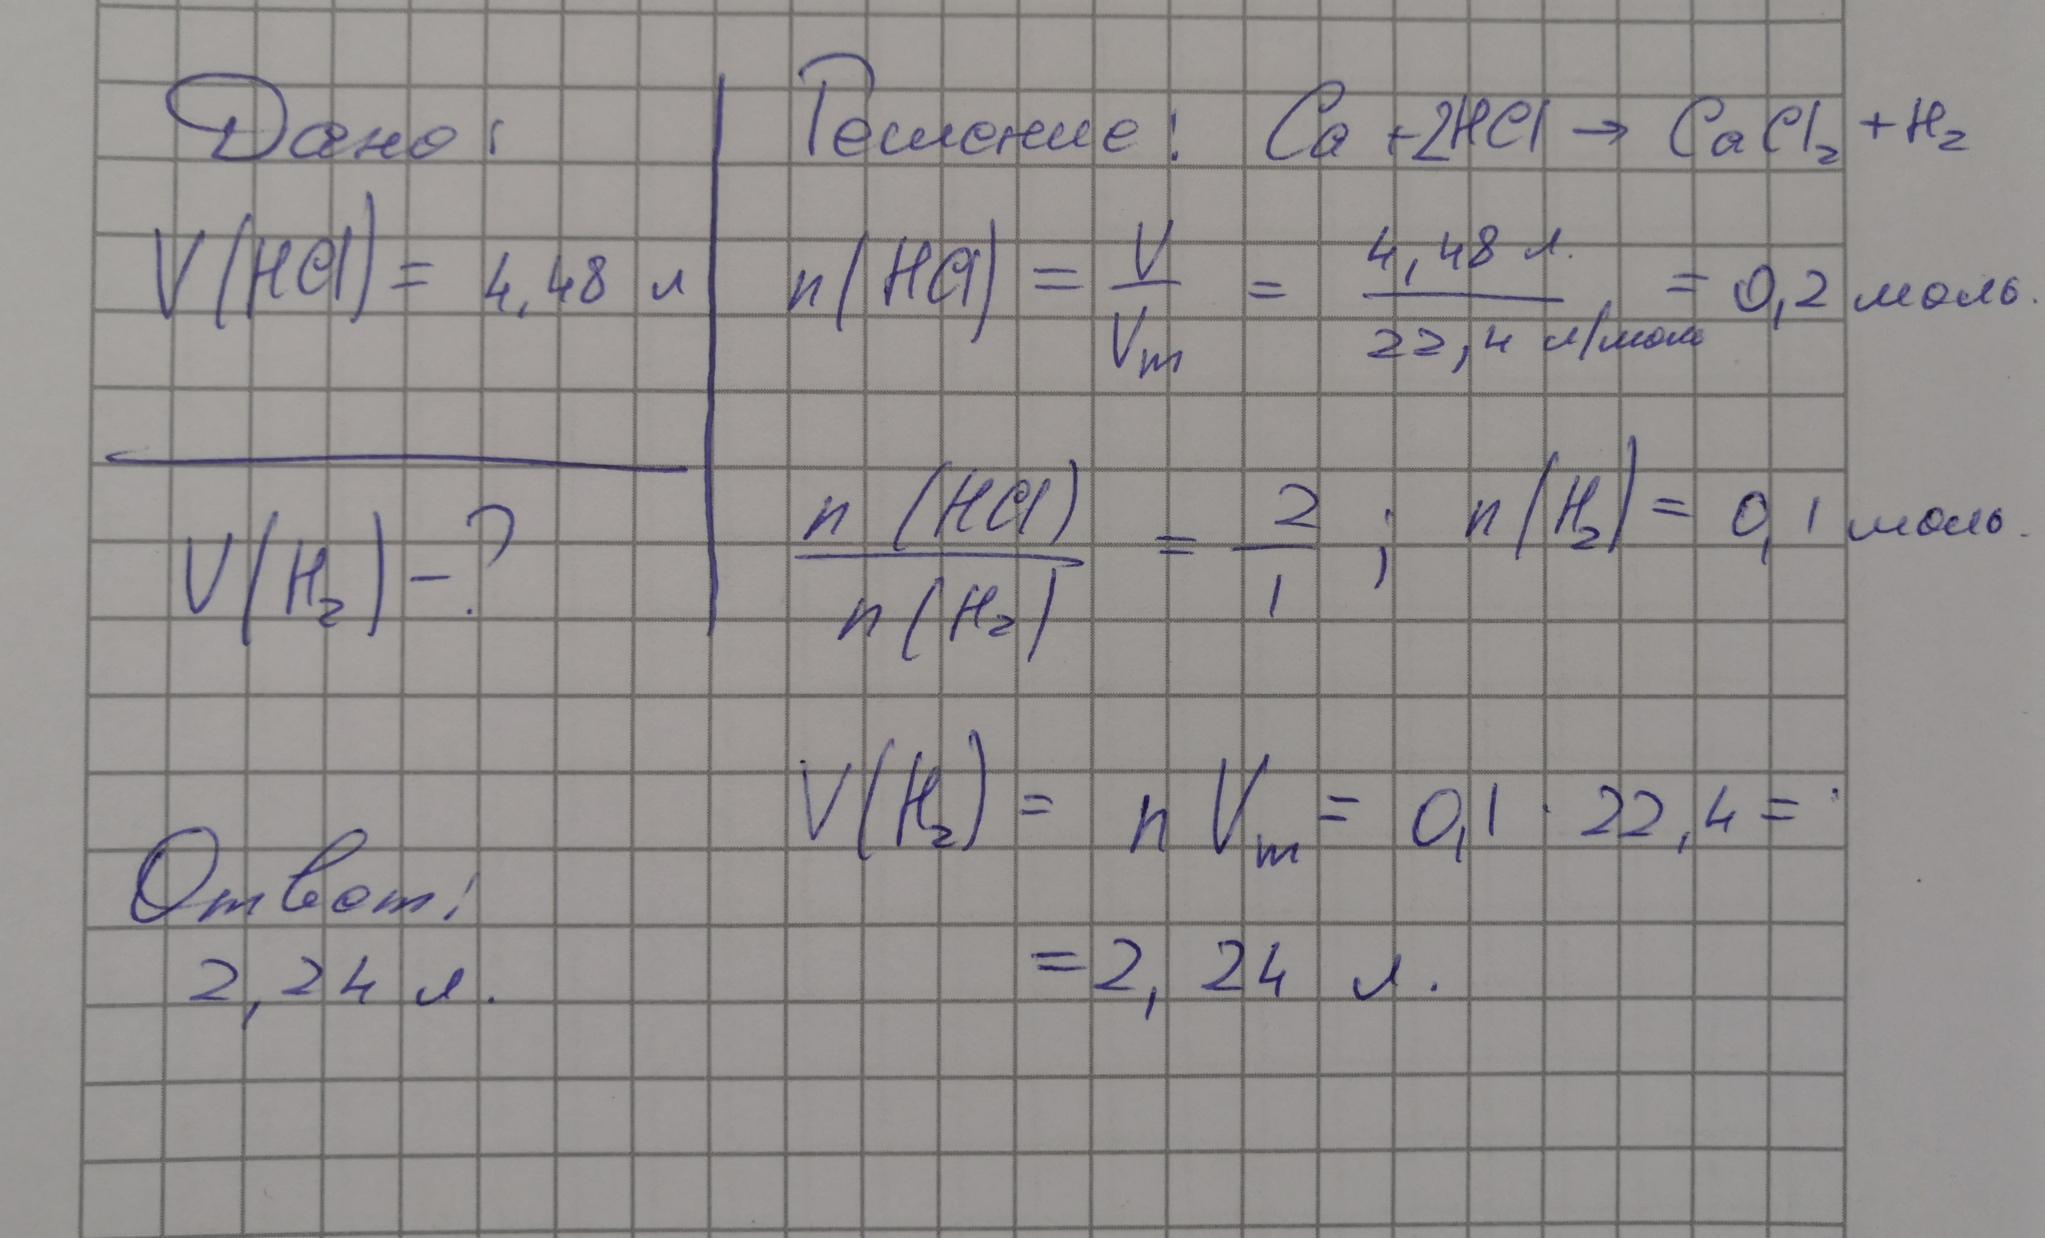 Дано:
V(HCl) = 4,48 л
V(H₂) - ?
Решение: Ca + 2HCl → CaCl₂ + H₂
n(HCl) = V / Vm = 4,48 л. / 22,4 л/моль = 0,2 моль.
n(HCl) / n(H₂) = 2 / 1 ; n(H₂) = 0,1 моль.
V(H₂) = n Vm = 0,1 · 22,4 =
= 2,24 л.
Ответ:
2,24 л.